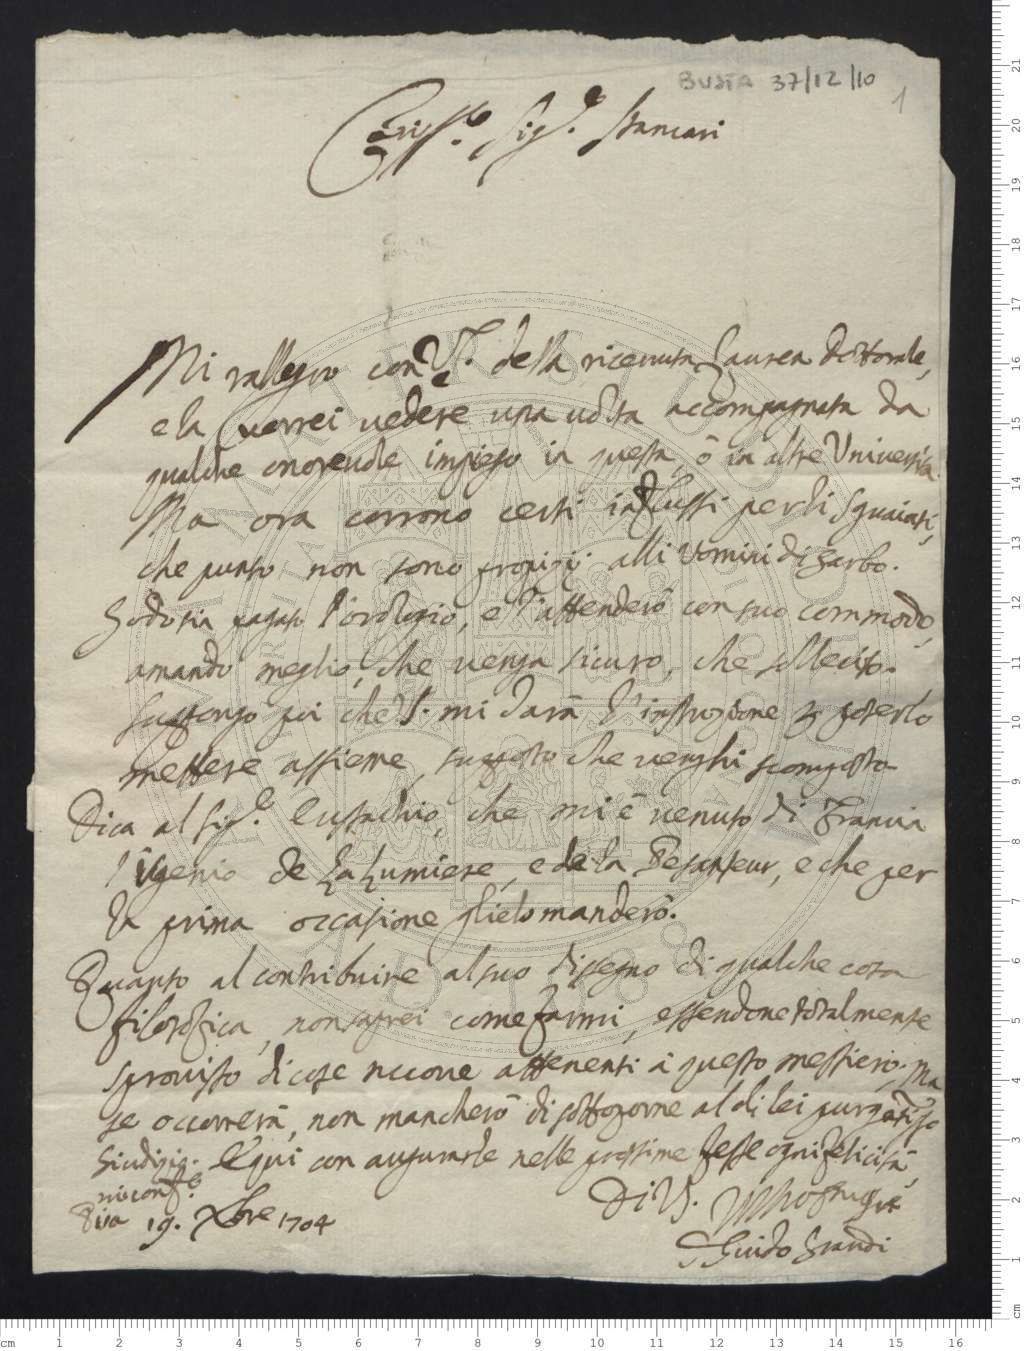 BUSTA 37/12/10
1
Sig.r Stancari
Mi rallegro con V.S. della ricevuta Laurea Dottorale,
e la vorrei vedere una volta accompagnata da
qualche onorevole impiego in questa, ò in altre Università
Ma ora corrono certi influssi per li sguaiati,
che punto non sono propizij alli Uomini di garbo.
Godo sia pagato l'orologio, e l'attenderò con suo commodo,
amando meglio, che venga sicuro, che sollecito.
Suppongo poi che V.S. mi darà l'instruzione per poterlo
mettere assieme, supposto che venghi scomposto
Dica al Sig.r Eustachio, che mi è venuto di Francia
de La Lumiere, e de la Pesanteur, e che per
la prima occasione glielo manderò.
Quanto al contribuire al suo disegno di qualche cosa
filosofica, non saprei come farmi, essendone totalmente
sprovisto di cose nuove attenenti à questo mestiero; Ma
se occorrerà, non mancherò di sottoporre al di lei purgatiss.o
Giudizio. E qui con augurarle nelle prossime feste ogni felicità,
mi conf.o
Pisa 19. Xbre 1704
Di V.S.
D. Guido Grandi